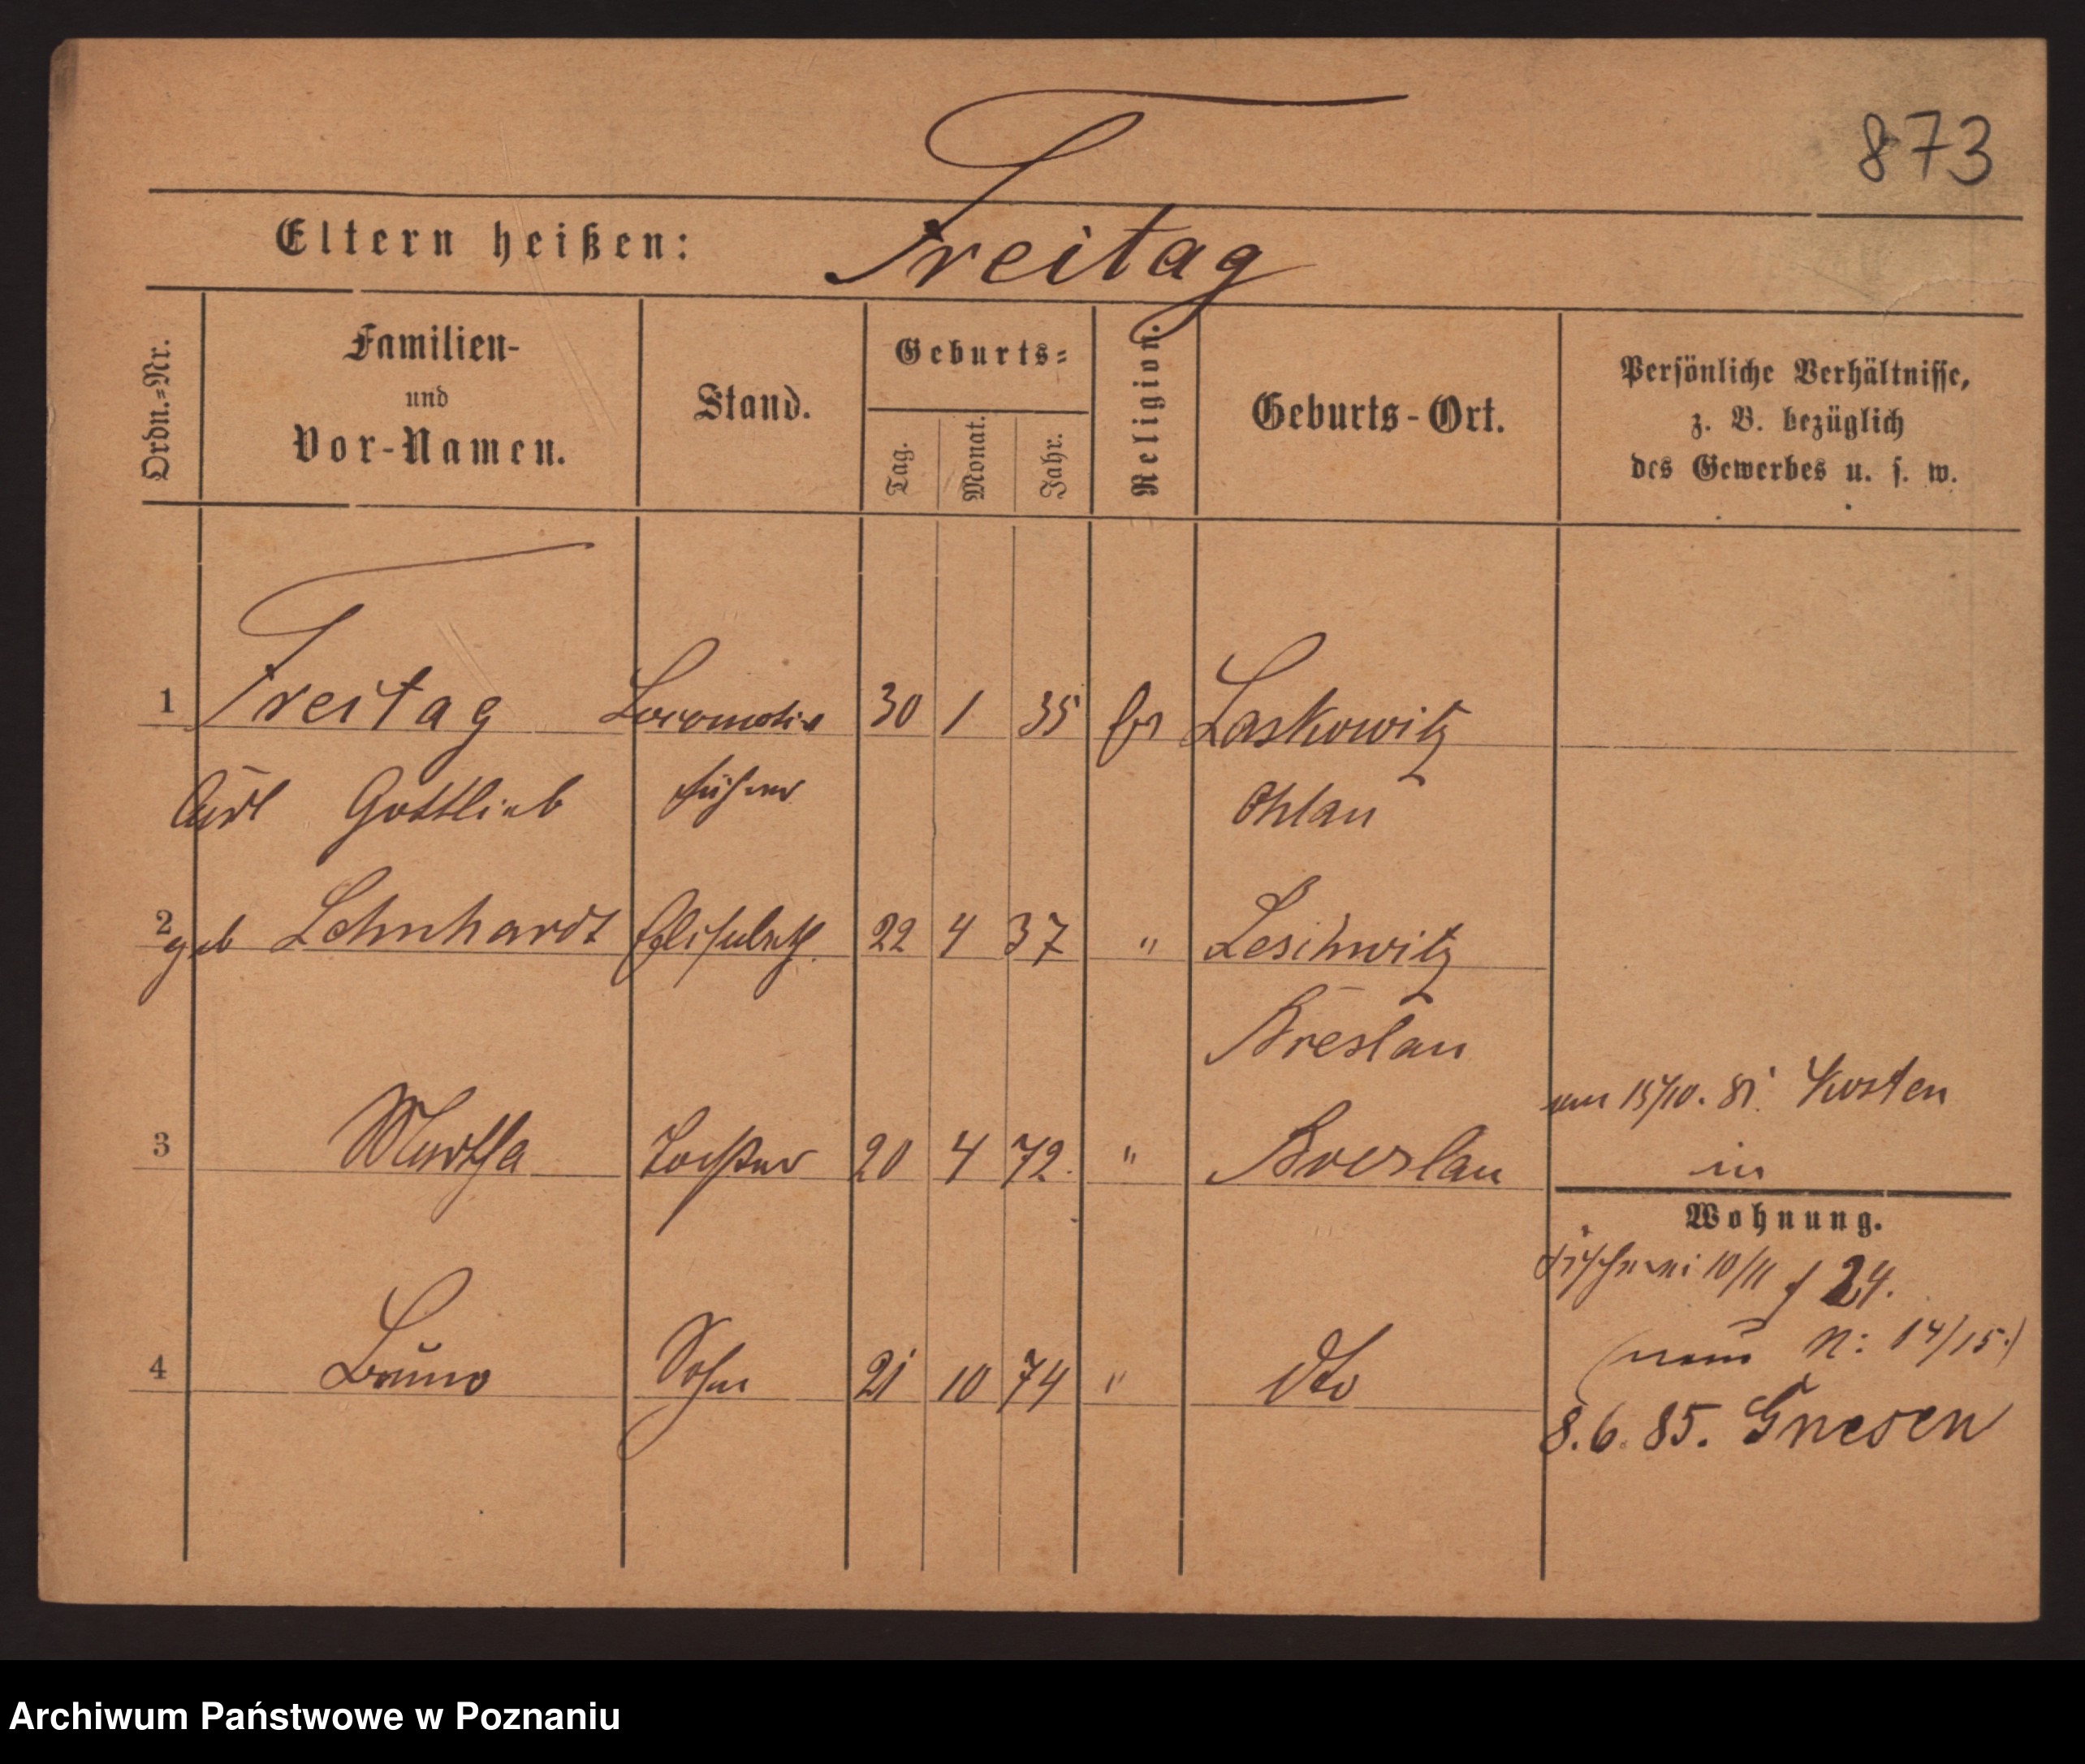 873
Eltern heißen: Freitag
Ordn.=Nr.
Familien- und Vor-Namen.
Stand.
Geburts=
Tag.
Monat.
Jahr.
Religion.
Geburts-Ort.
Persönliche Verhältnisse,
z. B. bezüglich
des Gewerbes u. s. w.
1 Freitag Locomotiv 30 1 35 Laskowitz
Carl Gottlieb führer Ohlau
2 geb Lehnhardt Elisabeth 22 4 37 " Leschwitz
Breslau
15/10. 81. Kosten
3 Martha Tochter 20 4 72. " Breslau
in
Wohnung.
Fischerei 10/11 f 24.
4 Bruno Sohn 21 10 74 " dto
(neue N: 14/15.)
8.6.85. Gnesen
Archiwum Państwowe w Poznaniu